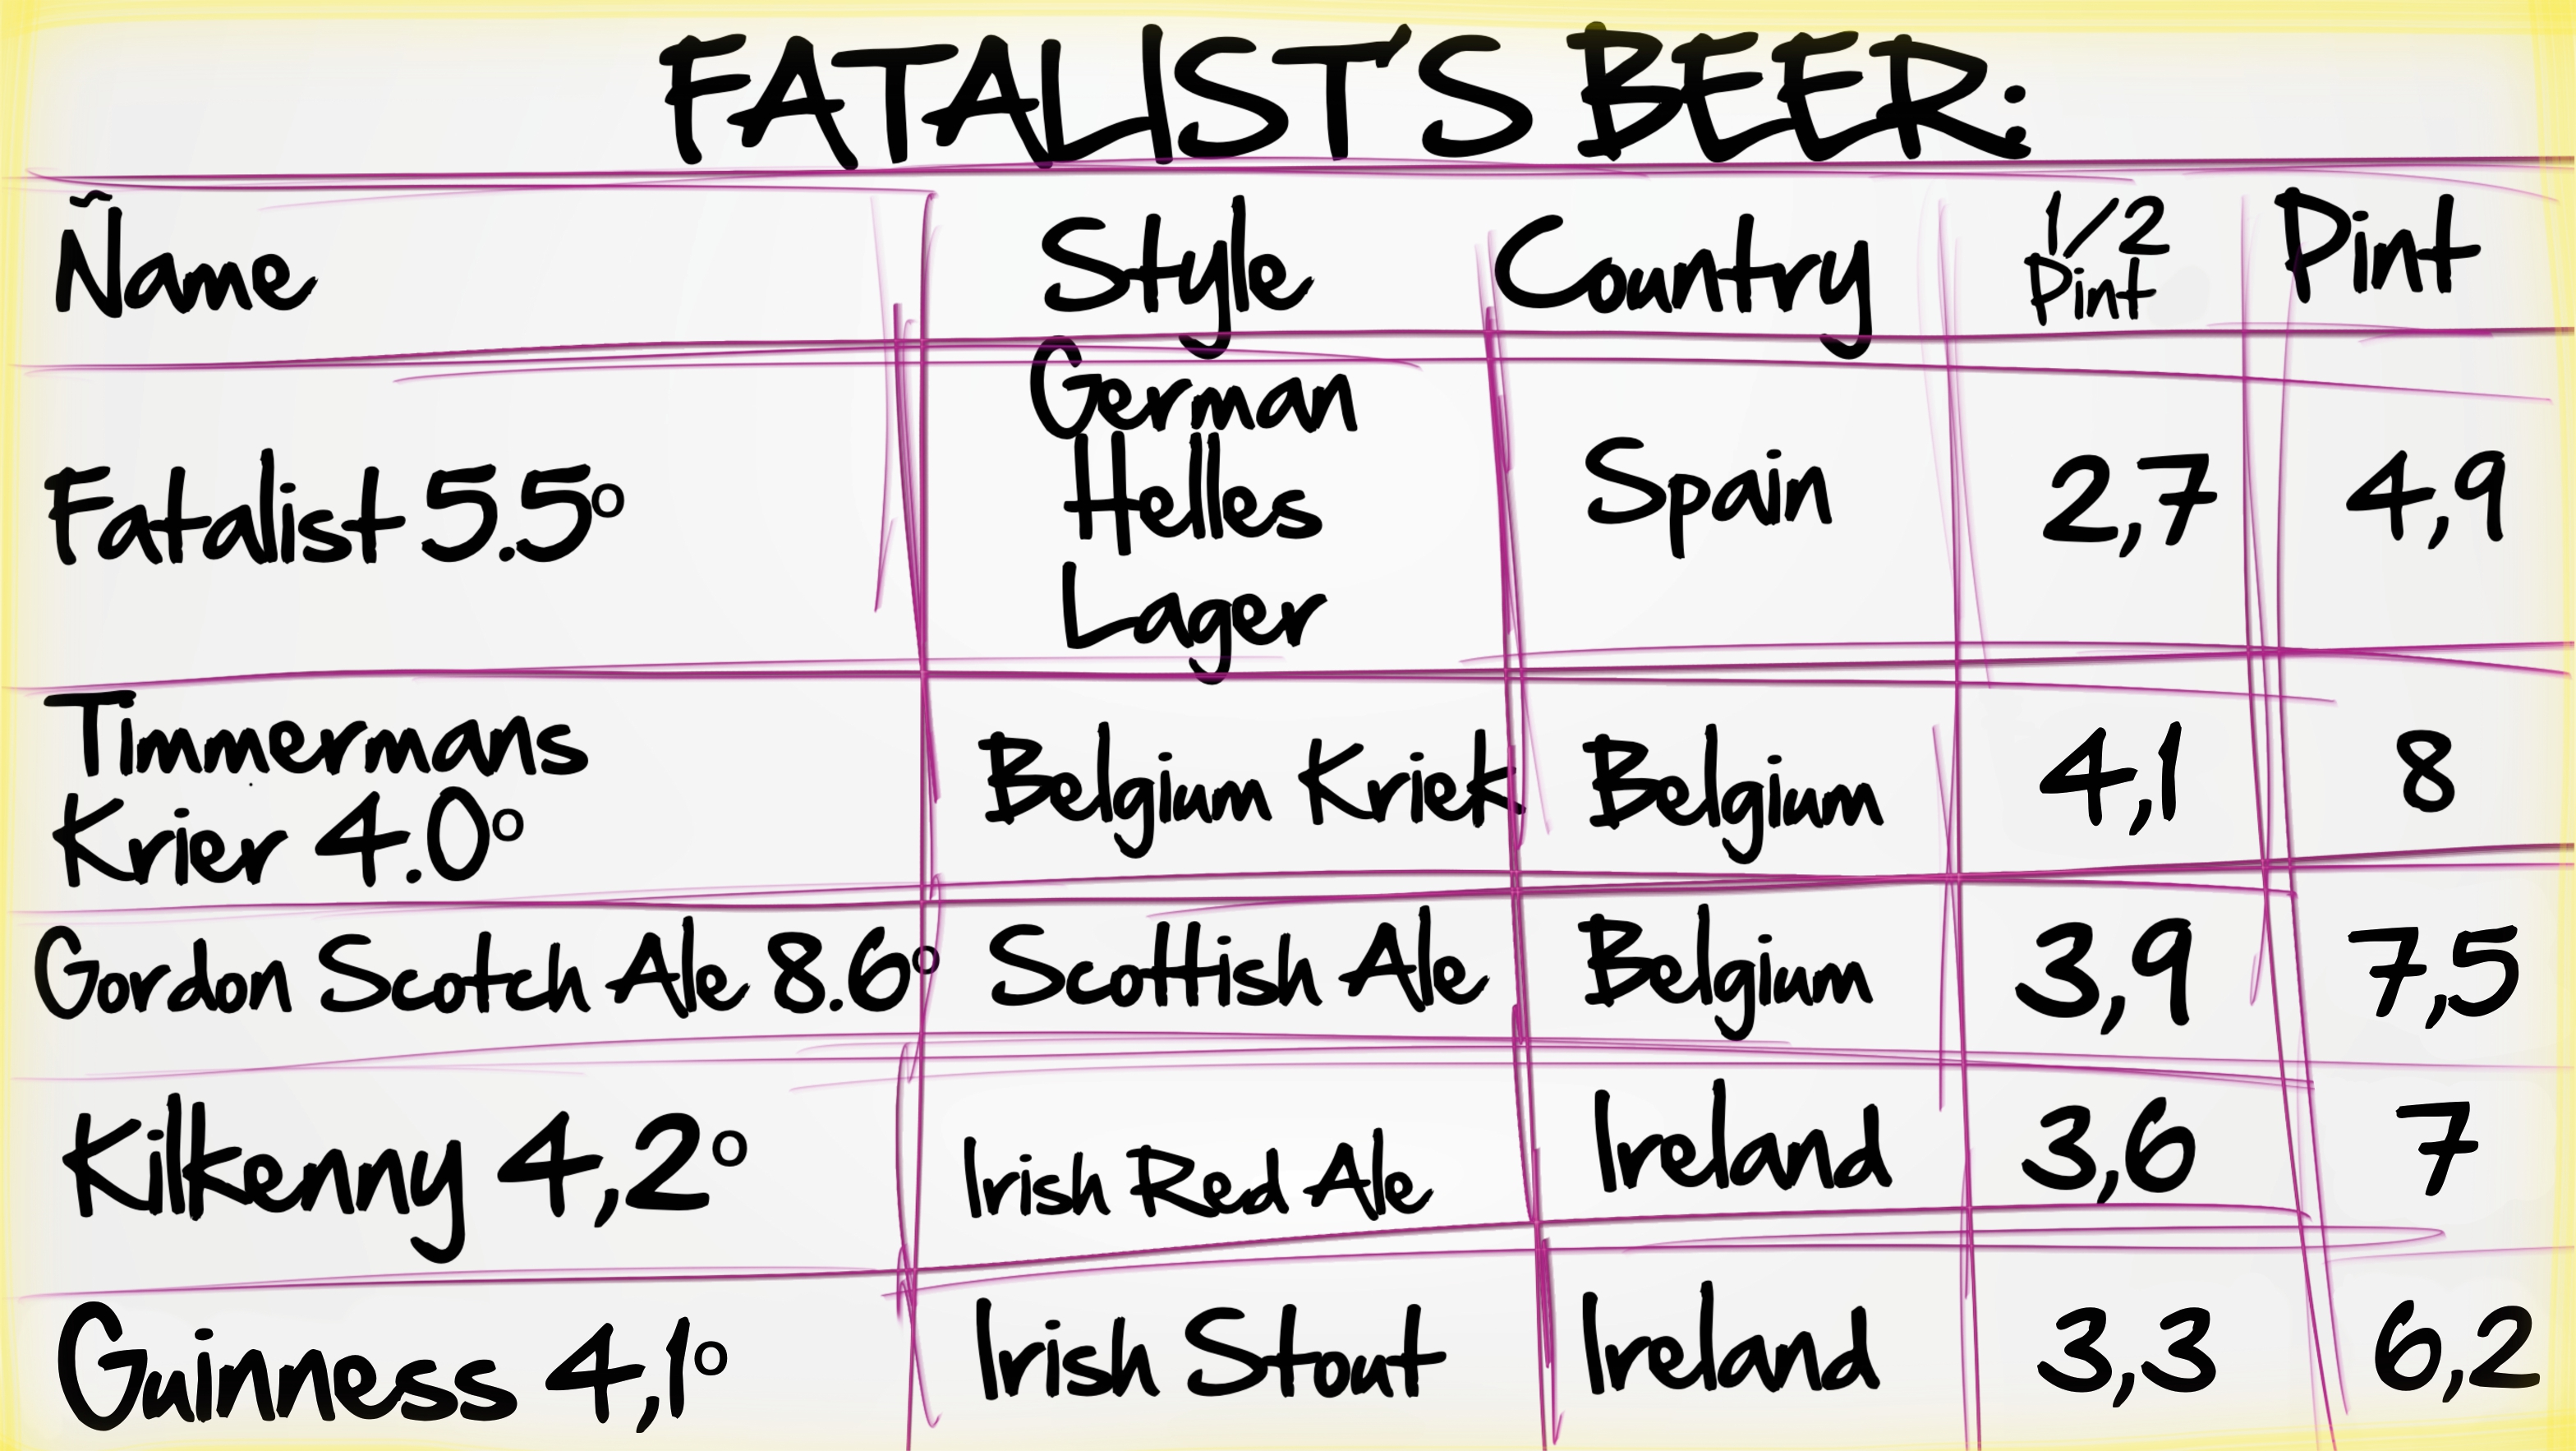 FATALIST'S BEER:
Ñame Style Country 1/2 Pint Pint
Fatalist 5.5º German Helles Lager Spain 2,7 4,9
Timmermans Krier 4.0º Belgium Kriek Belgium 4,1 8
Gordon Scotch Ale 8.6º Scottish Ale Belgium 3,9 7,5
Kilkenny 4,2º Irish Red Ale Ireland 3,6 7
Guinness 4,1º Irish Stout Ireland 3,3 6,2